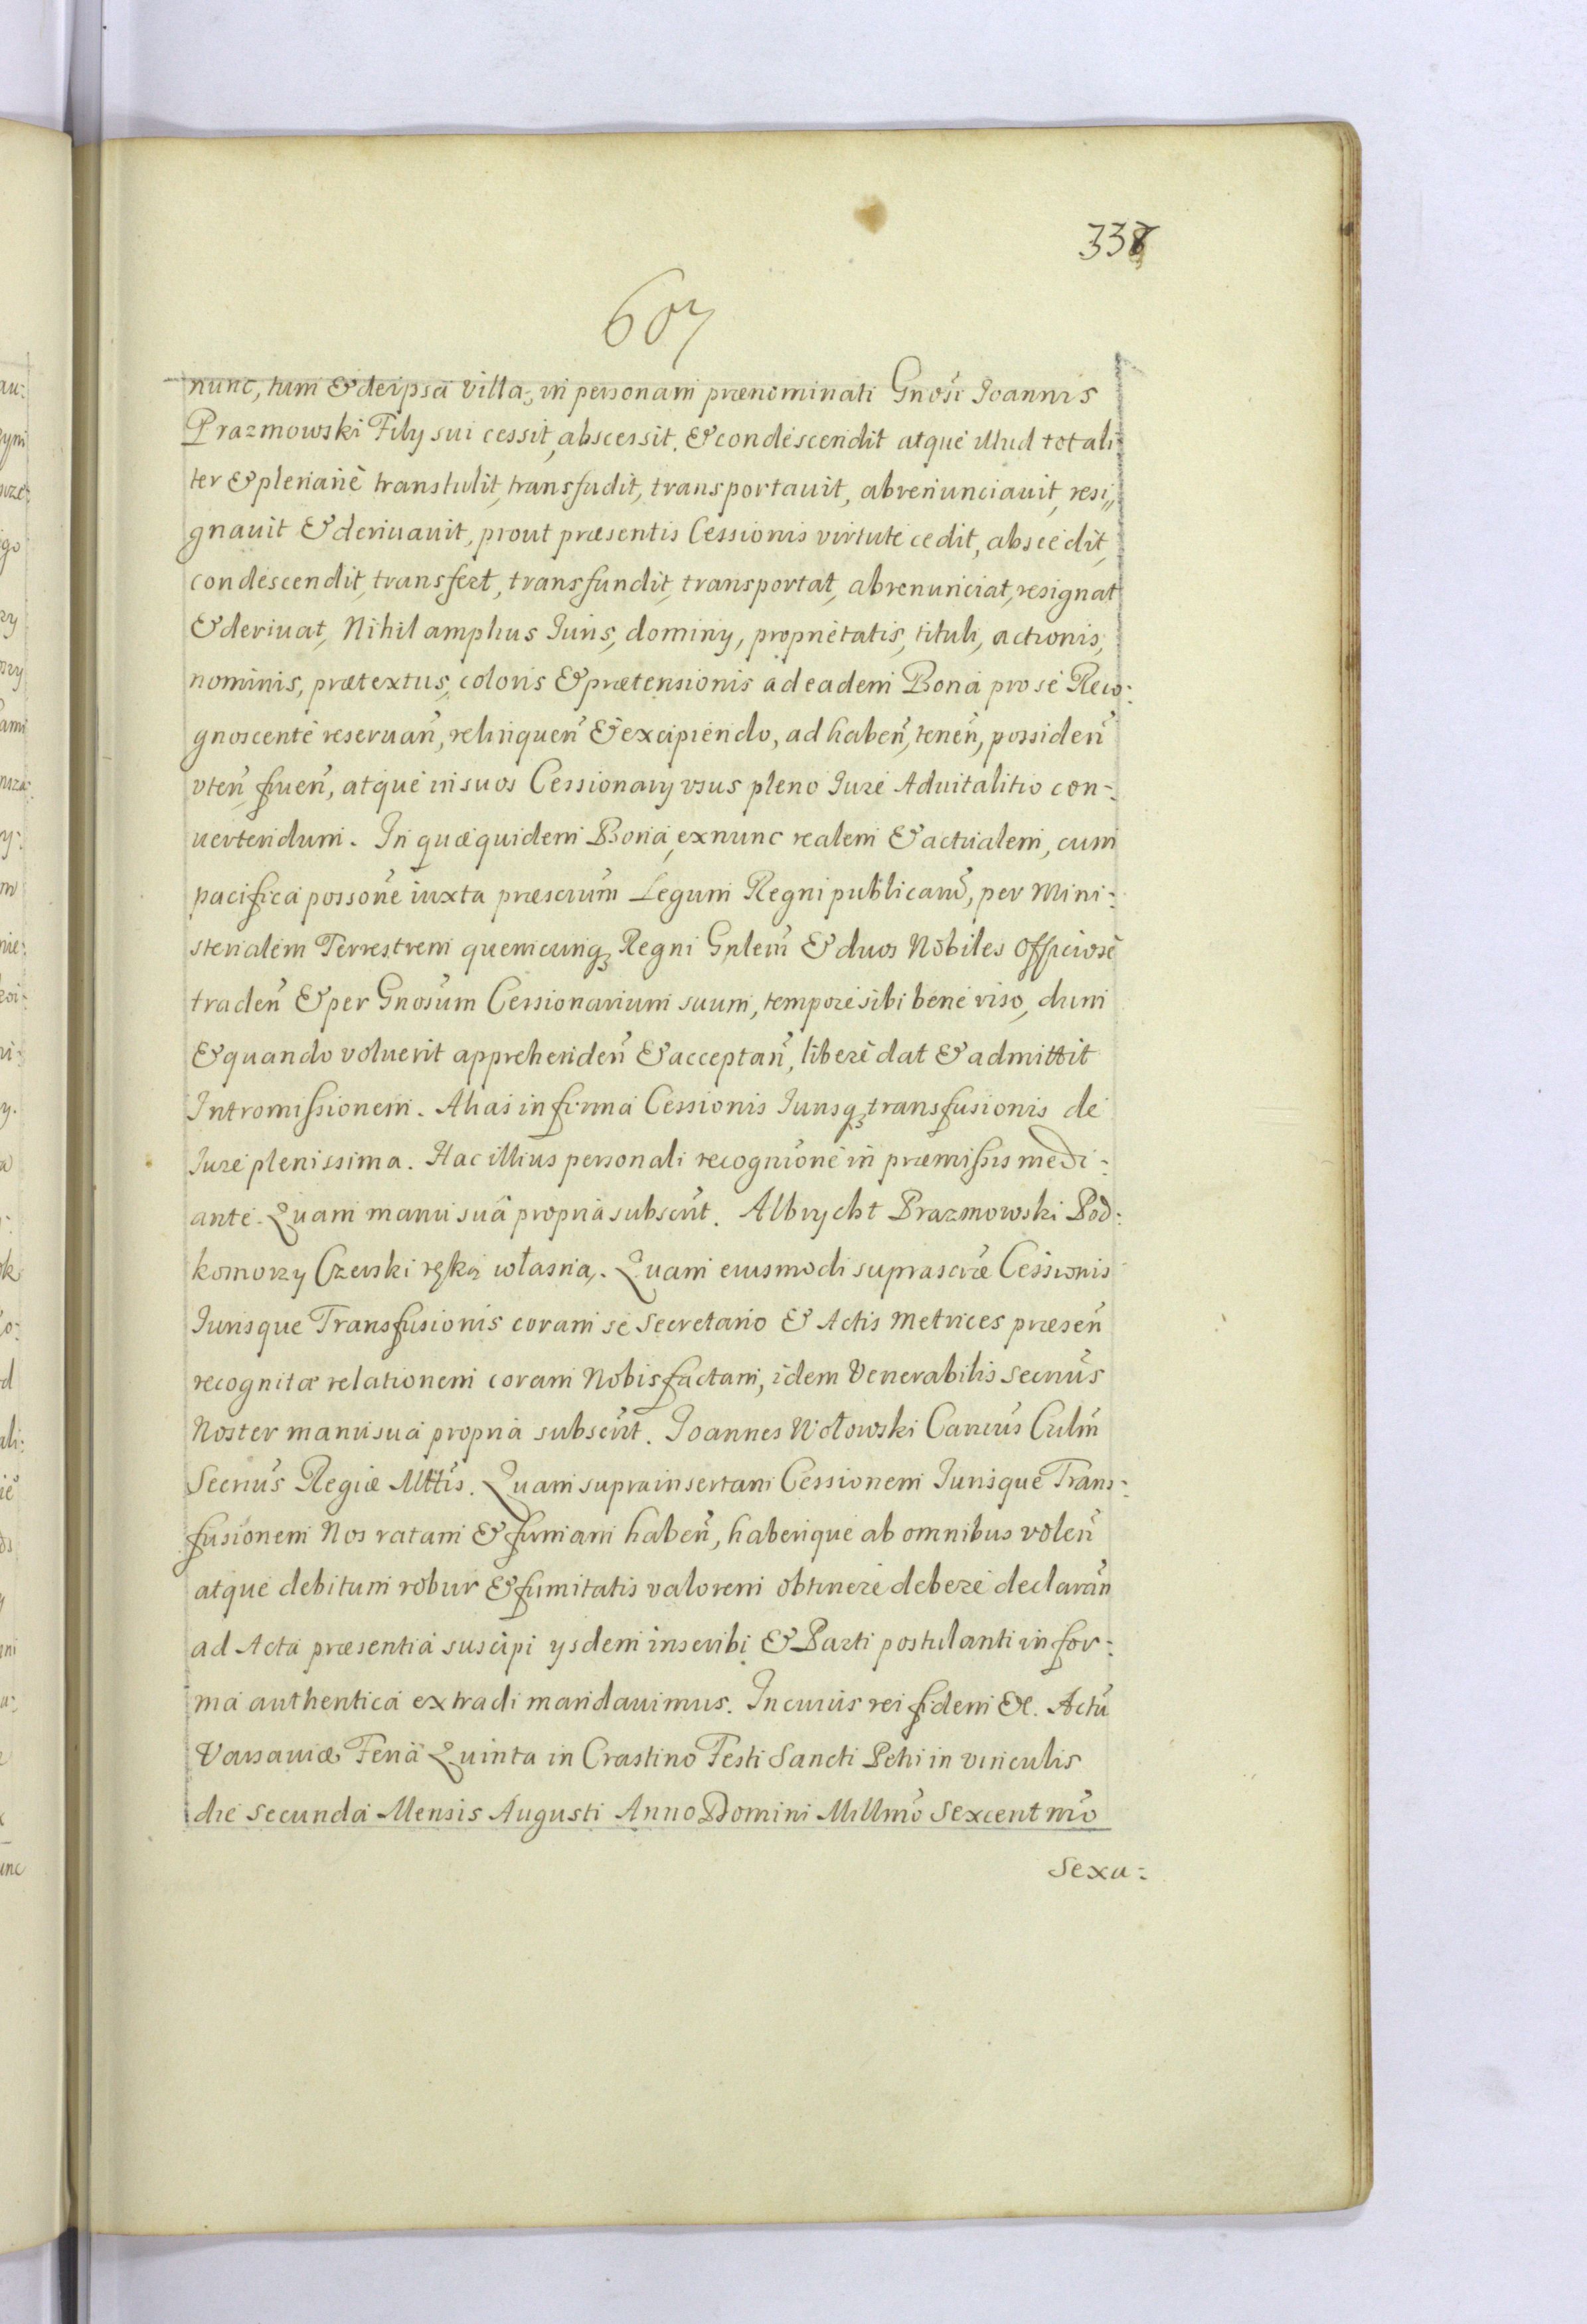 338
607
nunc, tum & de ipsa villa, in personam prænominati Gnosi Joannis
Prazmowski Filÿ sui cessit, abscessit, & condescendit atque illud totali-
ter & plenariè transtulit, transfudit, transportauit, abrenunciauit, resi-
gnauit & deriuauit, prout præsentis Cessionis virtute cedit, abscedit,
condescendit, transfert, transfundit, transportat, abrenunciat, resignat
& deriuat, Nihil amplius Juris, dominÿ, proprietatis, tituli, actionis,
nominis, prætextus, coloris & prætensionis ad eadem Bona pro se Reco:
gnoscente reseruan̄, relinquen̄ & excipiendo, ad haben̄, tenen̄, possiden̄
vten̄ fruen̄, atque in suos Cessionarÿ vsus pleno Jure Aduitalitio con-:
uertendum. In quæ quidem Bona, ex nunc realem & actualem, cum
pacifica possone iuxta præscrum Legum Regni publicaru, per Mini:
sterialem Terrestrem quemcunq Regni Gnlem & duos Nobiles officiosè
traden̄ & per Gnosum Cessionarium suum, tempore sibi bene viso, dum
& quando voluerit apprehenden̄ & acceptan̄, liberè dat & admittit
Intromissionem. Alias in firma Cessionis Jurisq transfusionis de
Jure plenissima. Hac illius personali recognitione in præmissis medi:
ante. Quam manu suâ propria subscrit. Albrycht Prazmowski Pod:
komorzy Czerski ręką własną. Quam eiusmodi suprascræ Cessionis
Jurisque Transfusionis coram se Secretario & Actis Metrices præsen̄
recognitæ relationem coram Nobis factam, idem Venerabilis Secrius
Noster manu sua propria subscrit. Joannes Wołowski Cancus Culm̄
Secrius Regiæ Mttis. Quam supra insertam Cessionem Jurisque Trans-:
fusionem Nos ratam & firmam haben̄, haberique ab omnibus volen̄
atque debitum robur & firmitatis valorem obtinere debere declaran̄
ad Acta præsentia suscipi ÿsdem inscribi & Parti postulanti in for-:
ma authentica extradi mandauimus. In cuius rei fidem &c. Actu
Varsauiæ Feriâ Quinta in Crastino Festi Sancti Petri in vinculis
die secunda Mensis Augusti Anno Domini Millmo Sexcentmo
Sexa: